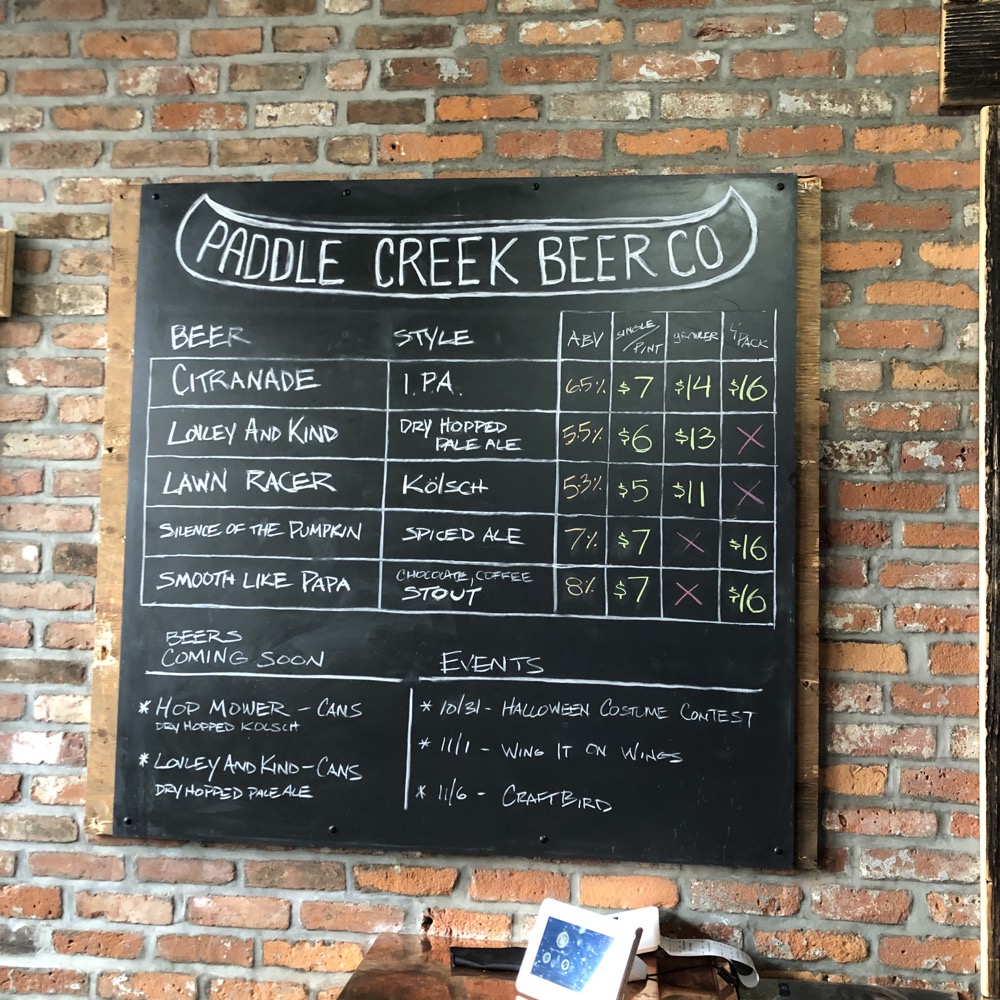 PADDLE CREEK BEER CO
BEER STYLE ABV SINGLE/PINT GROWLER 4 PACK
CITRANADE I.P.A. 6.5% $7 $14 $16
LOVLEY AND KIND DRY HOPPED PALE ALE 5.5% $6 $13 X
LAWN RACER KÖLSCH 5.3% $5 $11 X
SILENCE OF THE PUMPKIN SPICED ALE 7% $7 X $16
SMOOTH LIKE PAPA CHOCOLATE, COFFEE STOUT 8% $7 X $16
BEERS
COMING SOON
* HOP MOWER - CANS
DRY HOPPED KOLSCH
* LOVLEY AND KIND - CANS
DRY HOPPED PALE ALE
EVENTS
* 10/31 - HALLOWEEN COSTUME CONTEST
* 11/1 - WING IT ON WINGS
* 11/6 - CRAFT BIRD